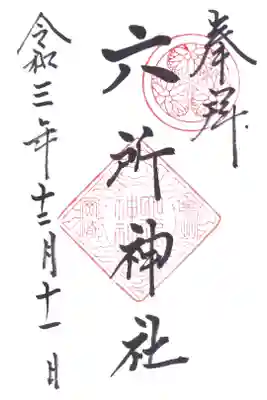 奉拝
六所神社
令和三年十二月十一日